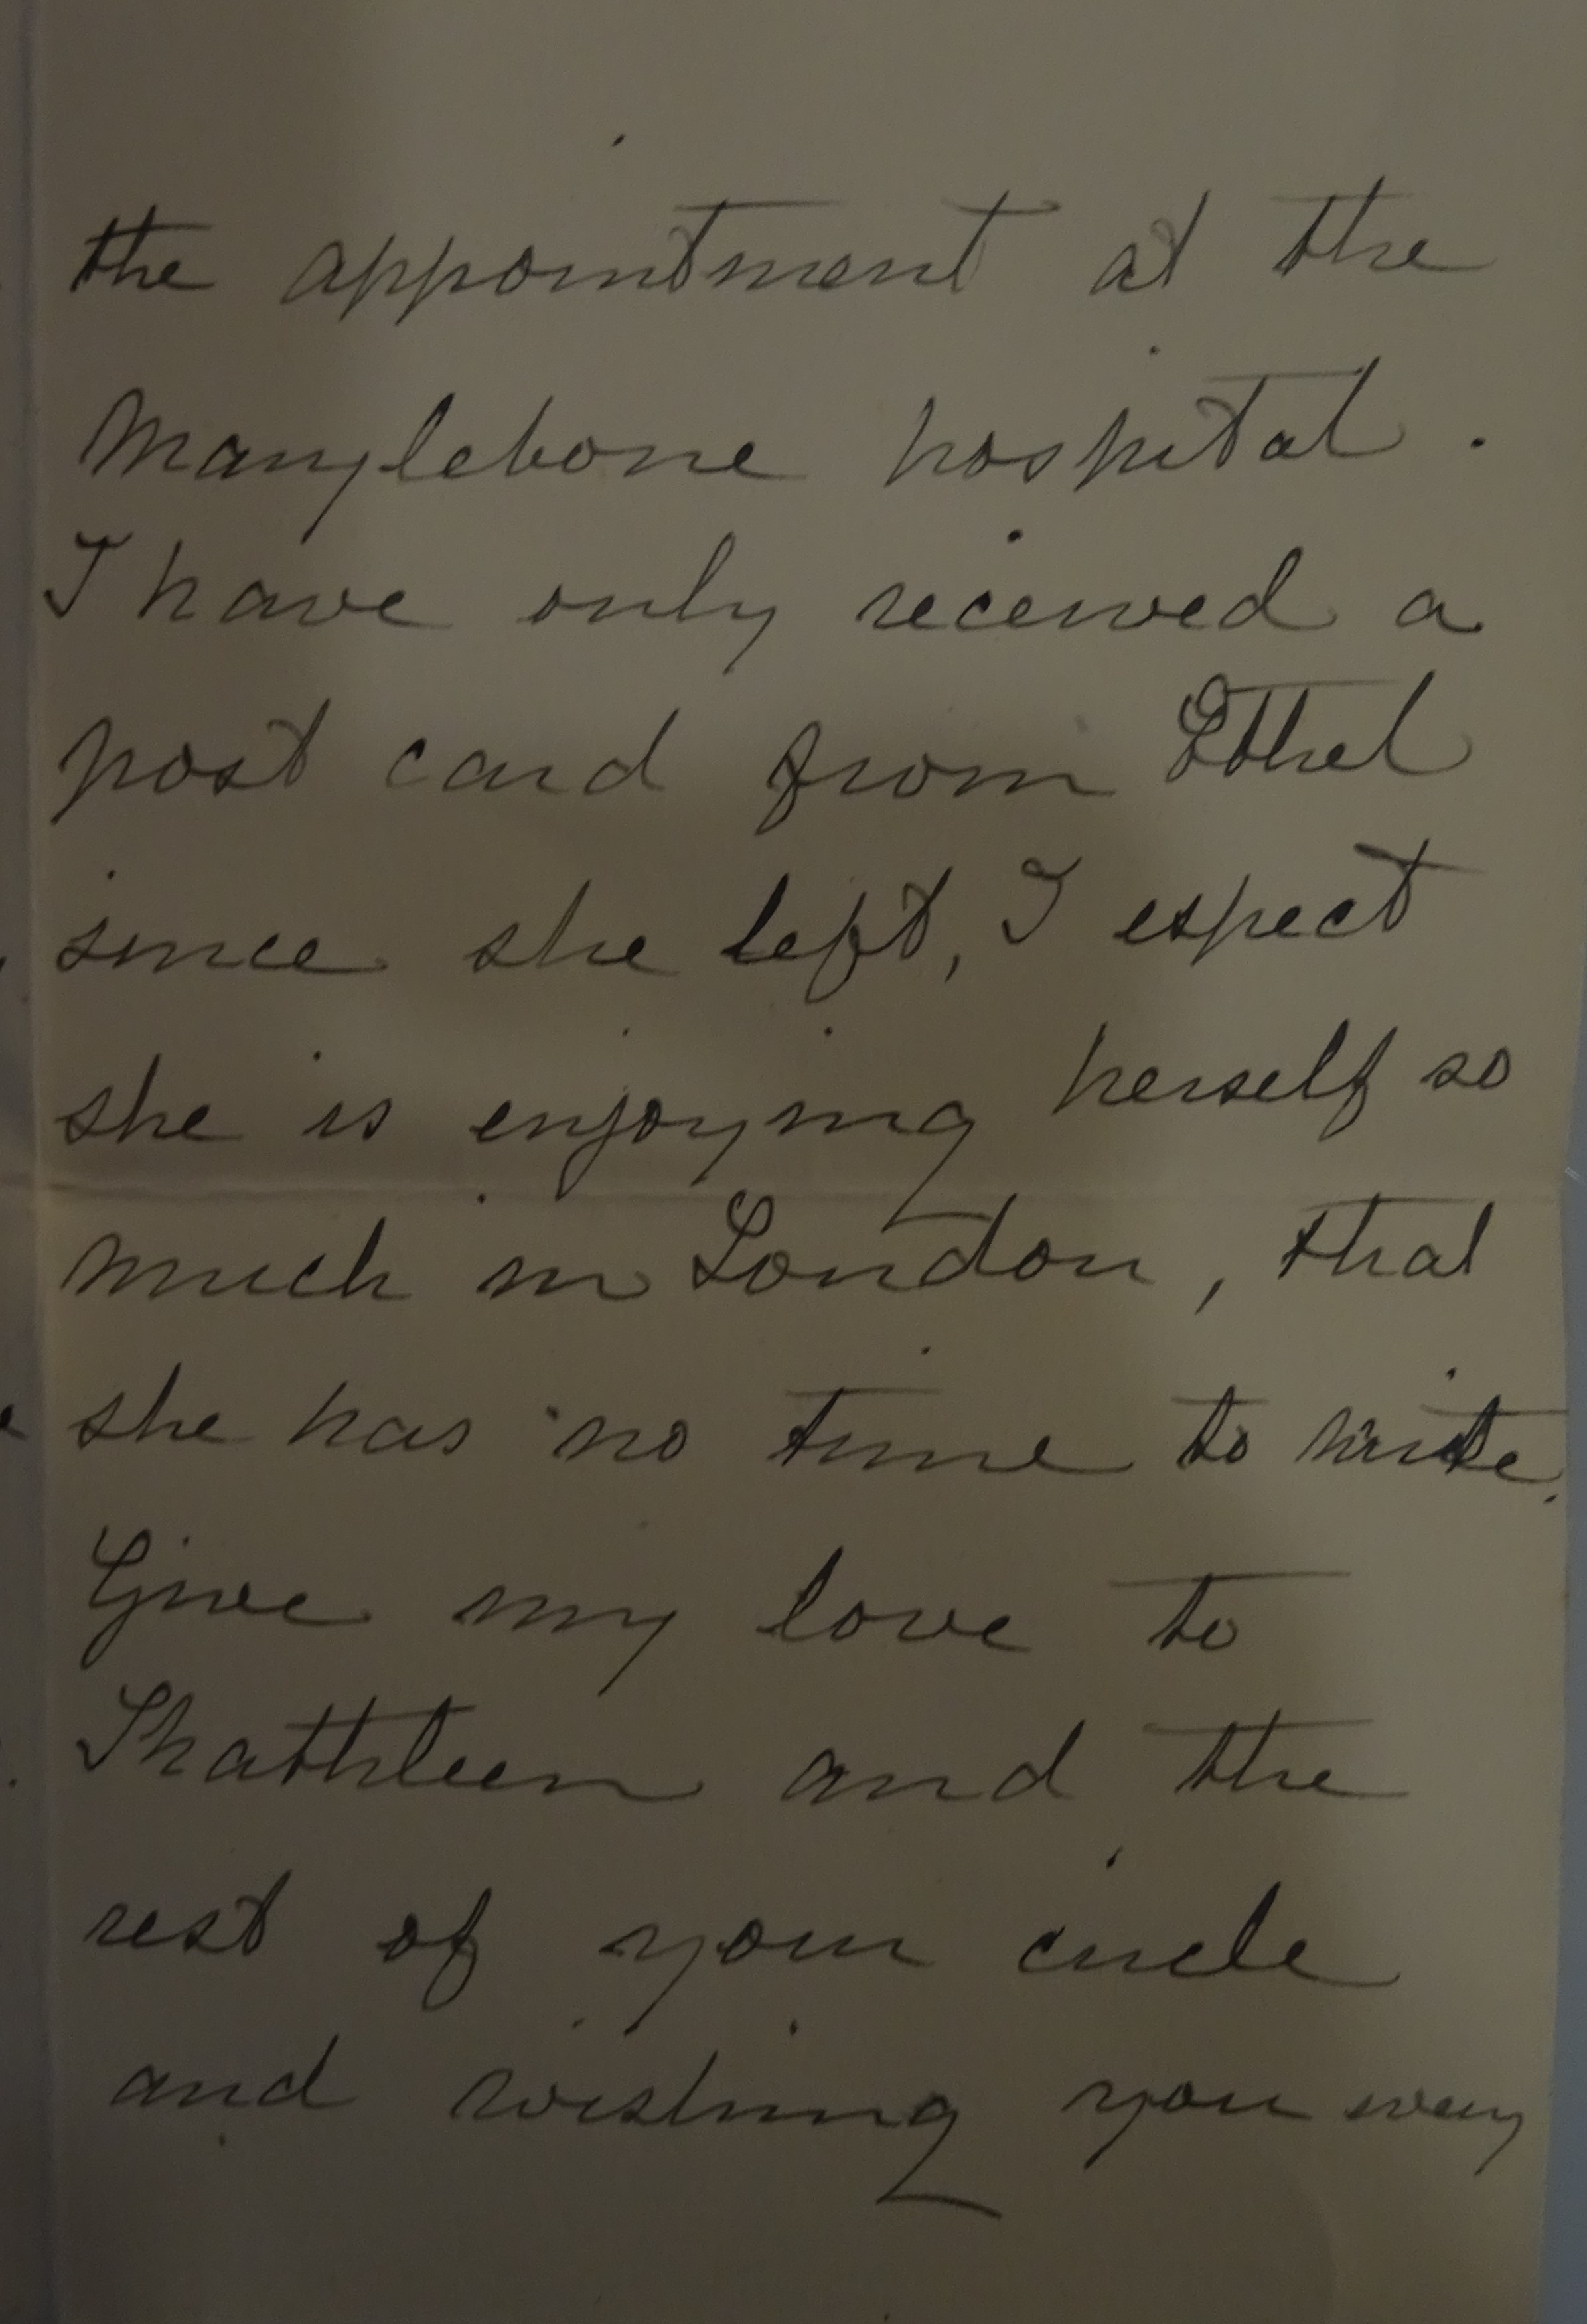 the appointment at the
Marylebone hospital.
I have only received a
post card from Ethel
since she left, I espect
she is enjoying herself so
much in London, that
she has no time to write.
Give my love to
Kathleen and the
rest of your circle
and wishing you every